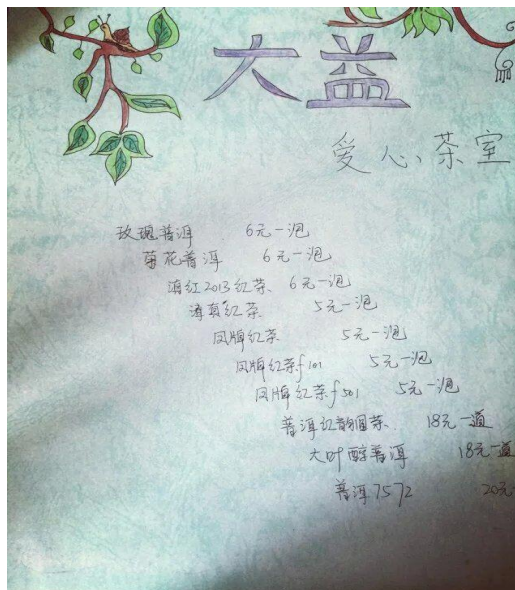 大益
爱心茶室
玫瑰普洱 6元一泡
菊花普洱 6元一泡
滇红2013红茶 6元一泡
滇真红茶 5元一泡
凤牌红茶 5元一泡
凤牌红茶f101 5元一泡
凤牌红茶f501 5元一泡
普洱红韵圆茶 18元一道
大叶醇普洱 18元一道
普洱7572 20元